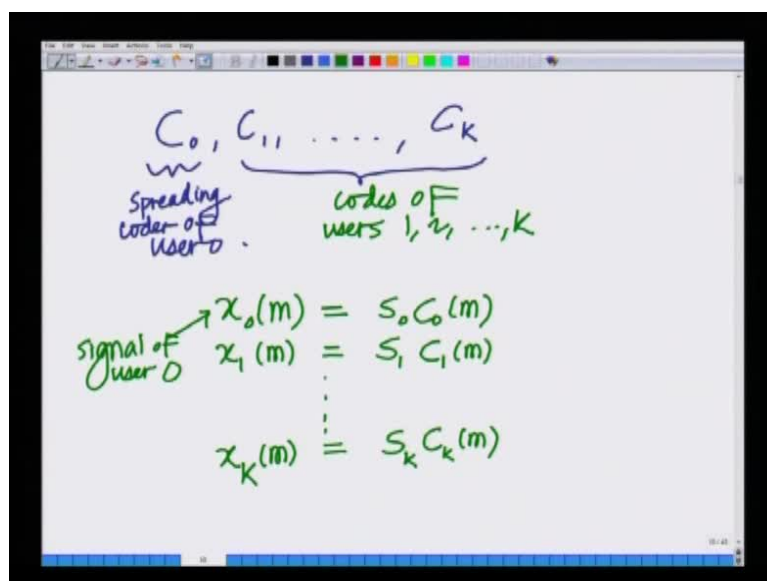 File Edit View Insert Actions Tools Help
C₀, C₁, ...., C_K
Spreading
coder of
user 0.
codes of
users 1, 2, ..., K
x₀(m) = S₀C₀(m)
signal of
user 0
x₁(m) = S₁ C₁(m)
x_K(m) = S_k C_k(m)